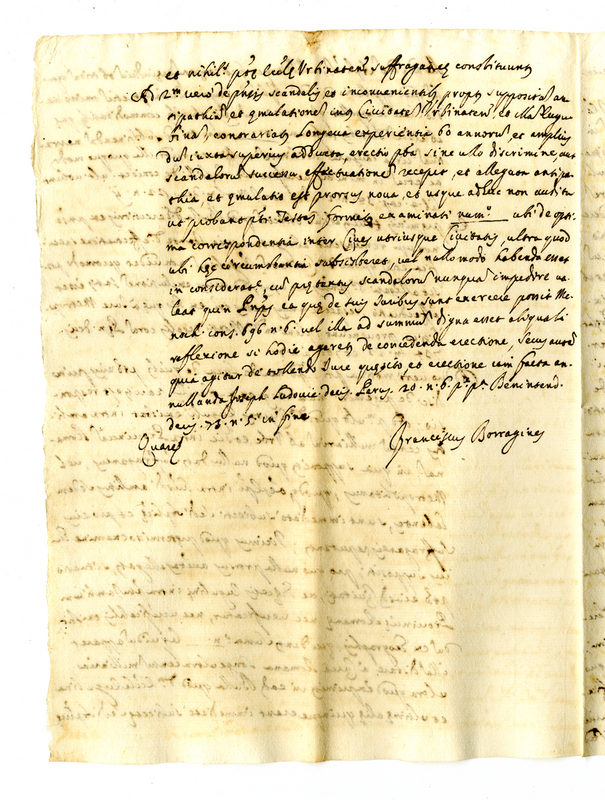 et nihil
Ad 2m vero de scandalis et inconvenientibus
et emulatione inter Civitatem Urbinaten et
contrarietas longeva experientia 60 annorum et amplius
iuxta superius adducta, erectio sine ullo discrimine, aut
scandalorum successu, effectuationem recepit, et allegata antipa
thia et emulatio est prorsus nova, et usque adhuc non audita
ut probant Testes examinati ubi de opti
ma correspondentia inter Cives utriusque Civitatis, ultra quod
ubi hec circumstantia subsisteret, vel nullo modo habenda esset
in consideratione, cum pretextus scandalorum nunquam impedire va
leat quin ea que de sui iuribus sunt exercere possit Me
noch. cons. 696 n. 6. vel illa ad summum digna esset aliquali
reflexione si hodie ageretur de concedenda erectione, secus autem
quia agitur de tollendo Iure quesito, et erectione iam facta an
nullanda Ioseph Ludovic. decis. Perus. 20. n. 6. p. Benintend.
decis. 73. n. 5. in fine
Quare
Franciscus Borragines